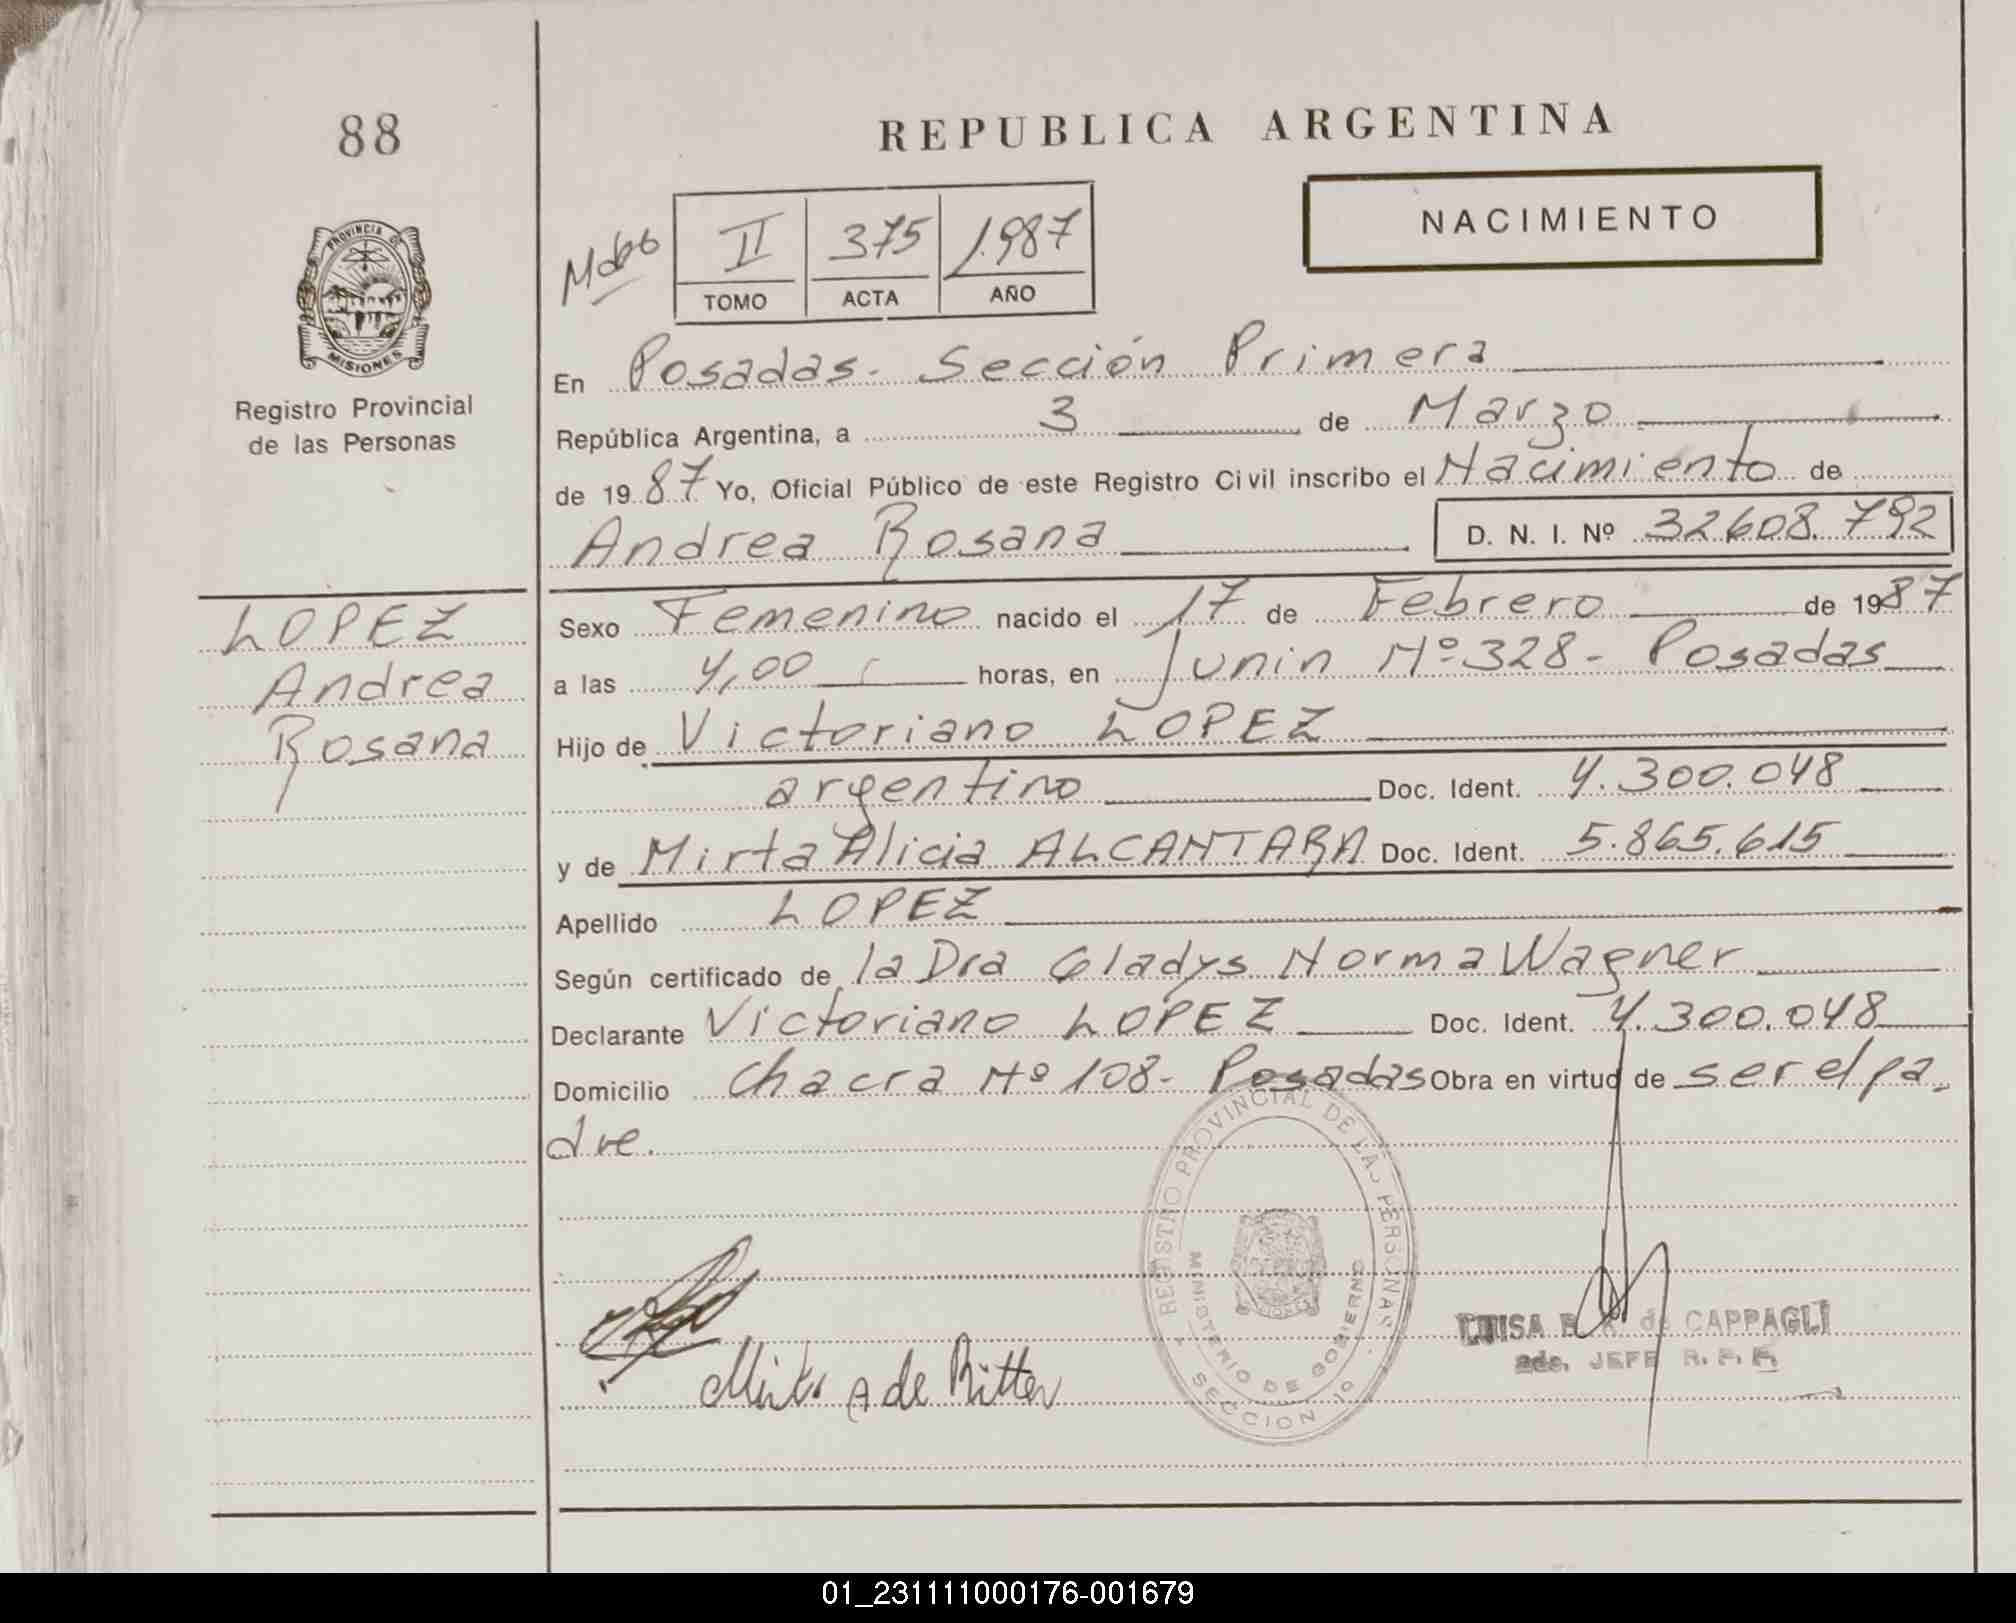 88
REPUBLICA ARGENTINA
PROVINCIA DE
MISIONES
Registro Provincial
de las Personas
NACIMIENTO
II 375 1.987
TOMO ACTA AÑO
En Posadas - Sección Primera
República Argentina, a 3 de Marzo
de 1987 Yo, Oficial Público de este Registro Civil inscribo el Nacimiento de
Andrea Rosana D. N. I. Nº 32608.792
LOPEZ
Andrea
Rosana
Sexo Femenino nacido el 17 de Febrero de 1987
a las 4,00 horas, en Junin Nº 328 - Posadas
Hijo de Victoriano LOPEZ
argentino Doc. Ident. 4.300.048
y de Mirta Alicia ALCANTARA Doc. Ident. 5.865.615
Apellido LOPEZ
Según certificado de la Dra Gladys Norma Wagner
Declarante Victoriano LOPEZ Doc. Ident. 4.300.048
Domicilio Chacra Nº 108 - Posadas Obra en virtud de ser el pa-
dre.
REGISTRO PROVINCIAL DE LAS PERSONAS
MINISTERIO DE GOBIERNO
SECCION 1º
A de Ritter
LUISA de CAPPAGLI
JEFE R. P. P.
01_231111000176-001679